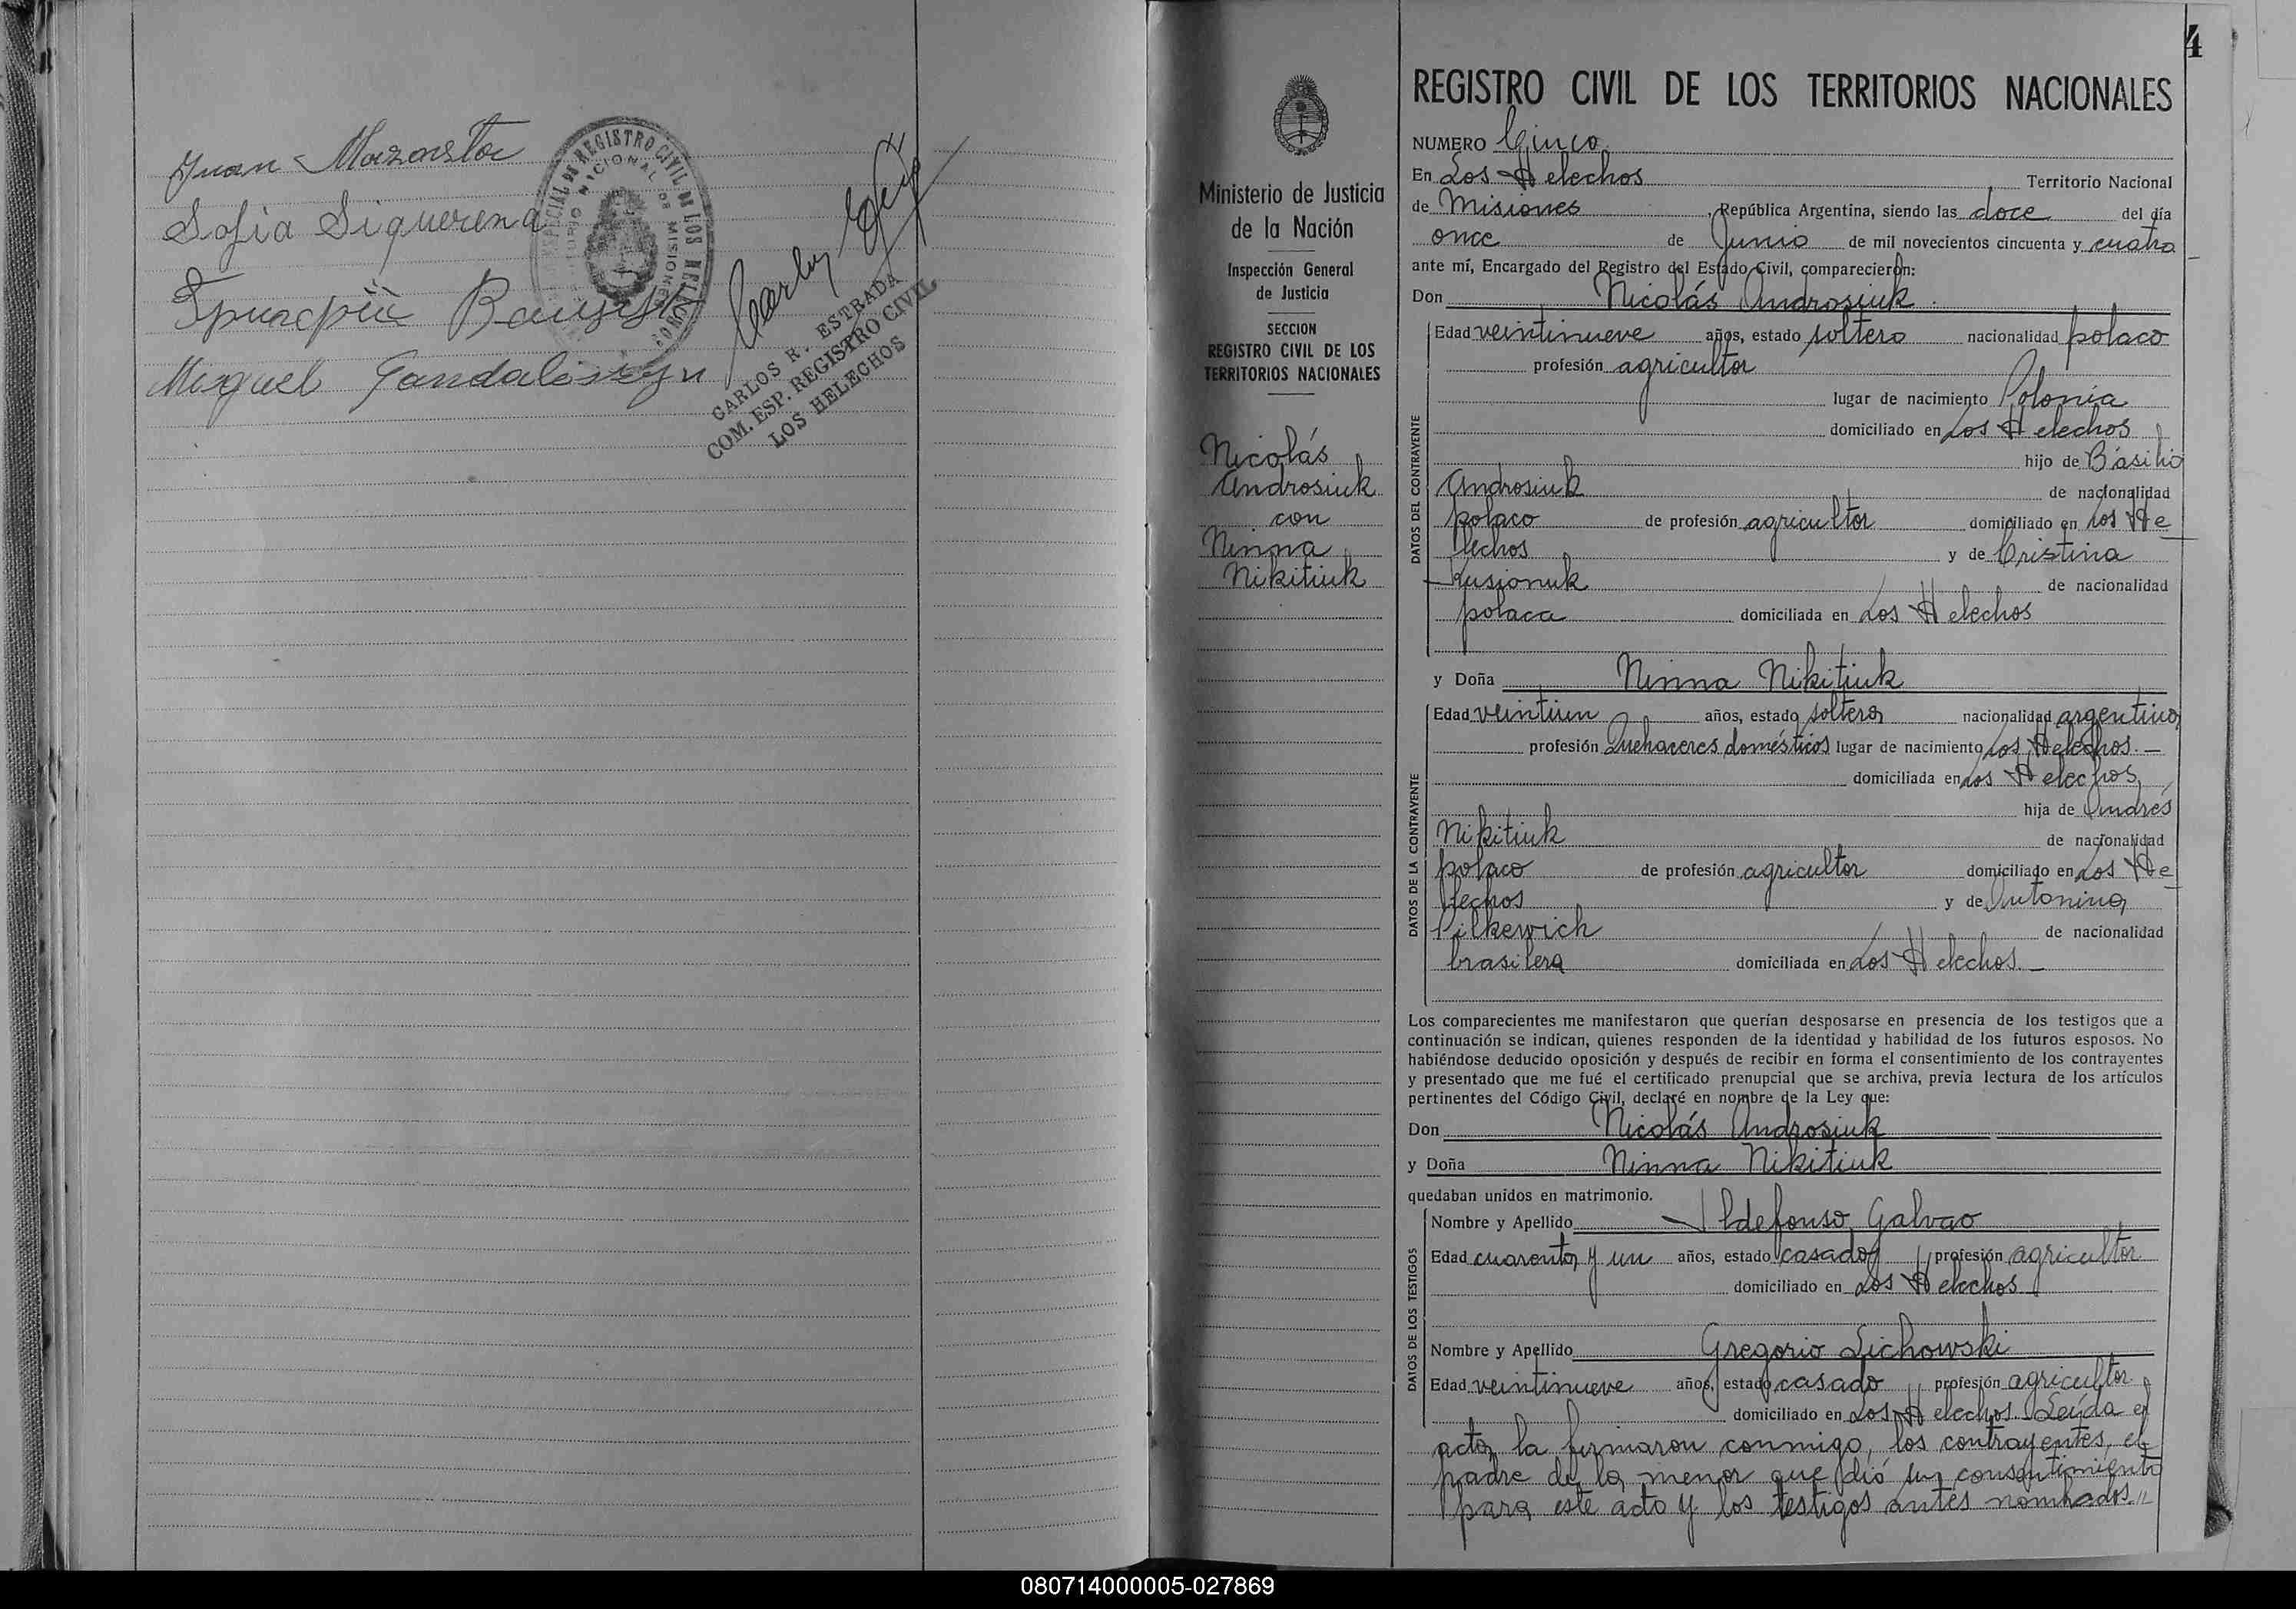 Juan Mazarsto
Sofia Siquerena
Miguel
REGISTRO CIVIL DE LOS
CARLOS R. ESTRADA
COM. ESP. REGISTRO CIVIL
LOS HELECHOS
Ministerio de Justicia
de la Nación
Inspección General
de Justicia
SECCION
REGISTRO CIVIL DE LOS
TERRITORIOS NACIONALES
Nicolás
Androsiuk
con
Ninna
Nikitiuk
4
REGISTRO CIVIL DE LOS TERRITORIOS NACIONALES
NUMERO Cinco
En Los Helechos Territorio Nacional
de Misiones, República Argentina, siendo las doce del día
once de Junio de mil novecientos cincuenta y cuatro
ante mí, Encargado del Registro del Estado Civil, comparecieron:
Don Nicolás Androsiuk.
DATOS DEL CONTRAYENTE
Edad veintinueve años, estado soltero nacionalidad polaco
profesión agricultor
lugar de nacimiento Polonia
domiciliado en Los Helechos
hijo de Básilio
Androsiuk de nacionalidad
polaco de profesión agricultor domiciliado en Los He
lechos y de Cristina
Kusionuk de nacionalidad
polaca domiciliada en Los Helechos
y Doña Ninna Nikitiuk
DATOS DE LA CONTRAYENTE
Edad veintiun años, estado soltera nacionalidad argentina
profesión Quehaceres domésticos lugar de nacimiento Los Helechos.—
domiciliada en Los Helechos
hija de Andrés
Nikitiuk de nacionalidad
polaco de profesión agricultor domiciliado en Los He
lechos y de Antonina
Pilkewich de nacionalidad
brasilera domiciliada en Los Helechos.—
Los comparecientes me manifestaron que querían desposarse en presencia de los testigos que a
continuación se indican, quienes responden de la identidad y habilidad de los futuros esposos. No
habiéndose deducido oposición y después de recibir en forma el consentimiento de los contrayentes
y presentado que me fué el certificado prenupcial que se archiva, previa lectura de los artículos
pertinentes del Código Civil, declaré en nombre de la Ley que:
Don Nicolás Androsiuk
y Doña Ninna Nikitiuk
quedaban unidos en matrimonio.
DATOS DE LOS TESTIGOS
Nombre y Apellido Ildefonso Galvao
Edad cuarenta y un años, estado casado profesión agricultor
domiciliado en Los Helechos
Nombre y Apellido Gregorio Lichowski
Edad veintinueve años, estado casado profesión agricultor
domiciliado en Los Helechos. Leída el
acta, la firmaron conmigo, los contrayentes, el
padre de la menor que dió su consentimiento
para este acto y los testigos antes nombrados.
080714000005-027869